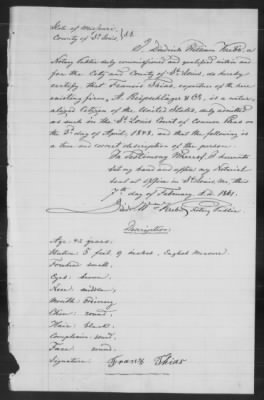 State of Missouri } S.S.
County of St. Louis,
I, Diedrich William a
Notary Public duly commissioned and qualified within and
for the City and County of St. Louis, do hereby
certify, that Francis Thias, copartner of the here
existing firm, A. & Co., is a natur-
alized Citizen of the United States, duly admitted
as such in the St. Louis Court of Common Pleas on
the 3d day of April, 1848, and that the following is
a true and correct description of the person.
In testimony Whereof, I hereunto
set my hand and affix my Notarial
seal at office in St. Louis, Mo. this
7th day of February A.D. 1861.
Notary Public
Description:
Age: 42 years.
Stature: 5 feet, 9 inches, English Measure.
Forehead: small.
Eyes: brown.
Nose: middle.
Mouth: ordinary
Chin: round.
Hair: black.
Complexion: round.
Face: round.
Signature: Franz Thias